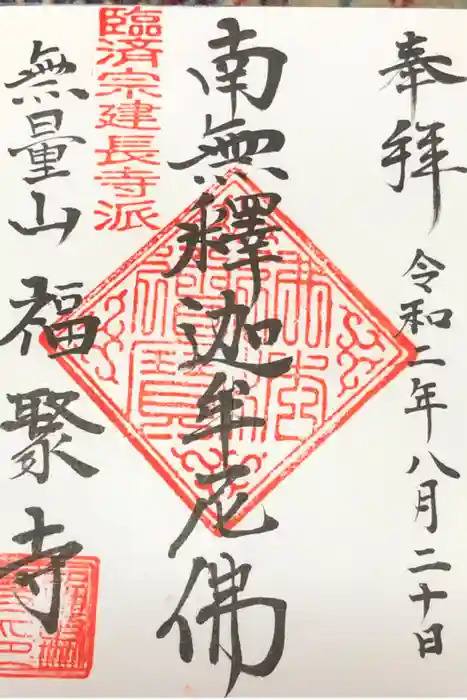 奉拝
令和二年八月二十日
南無釋迦牟尼佛
臨済宗建長寺派
無量山
福聚寺